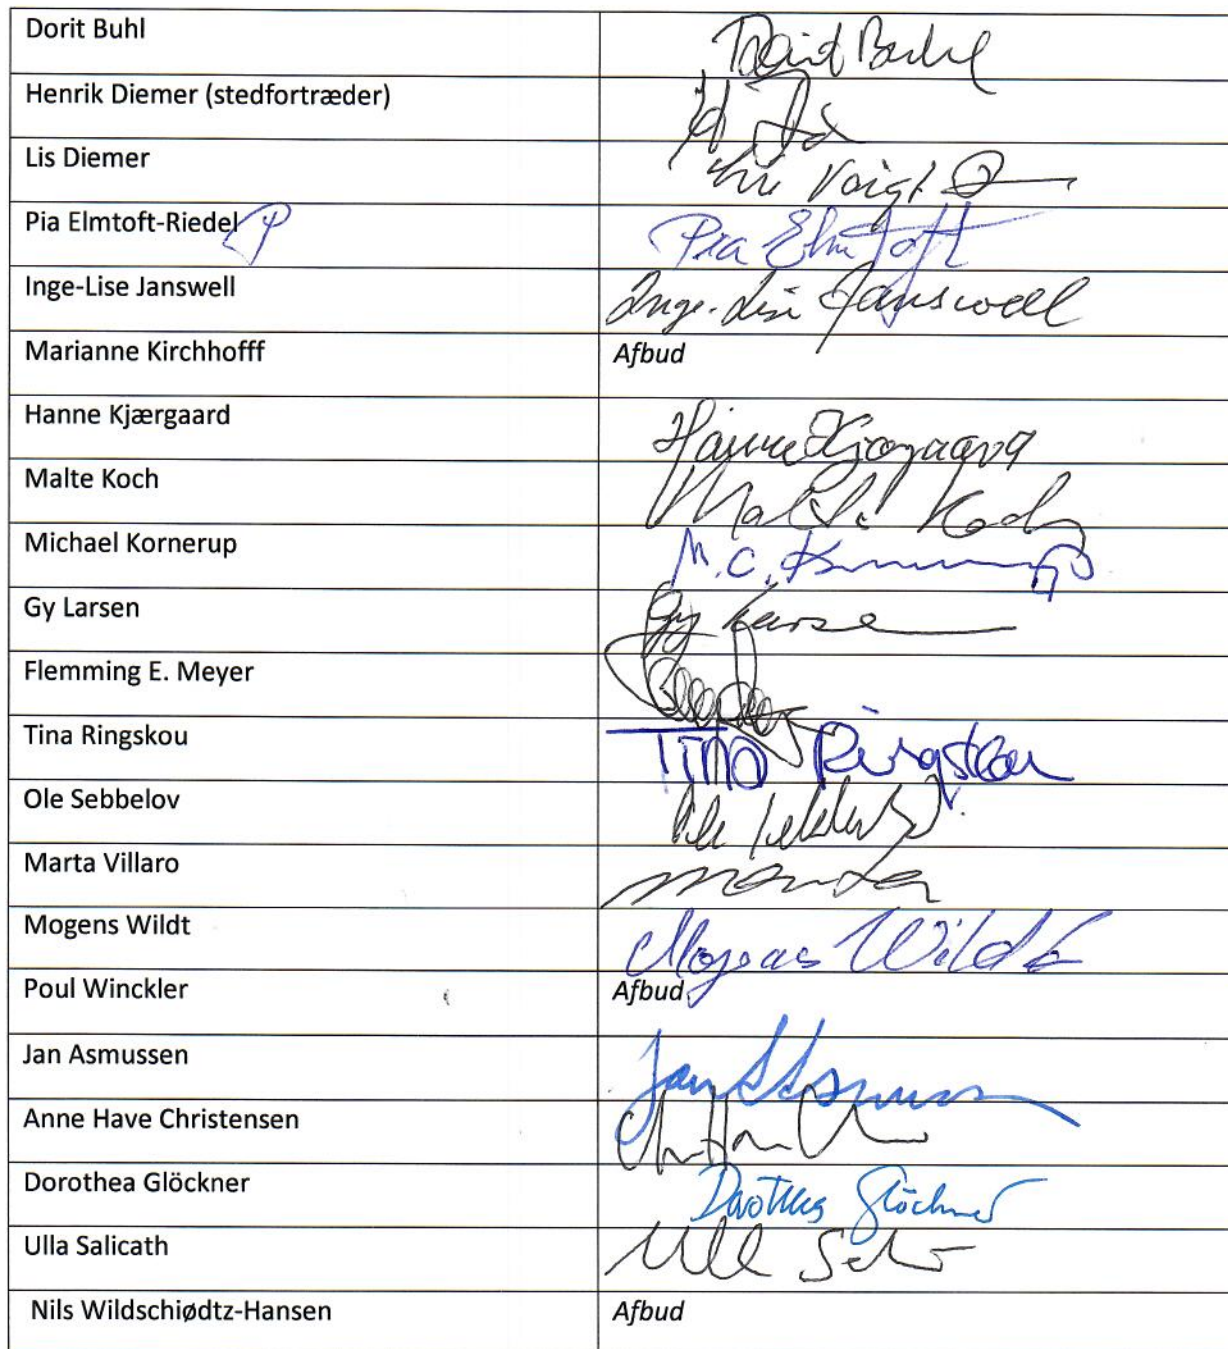 Dorit Buhl Dorit Buhl
Henrik Diemer (stedfortræder)
Lis Diemer Voigt
Pia Elmtoft-Riedel Pia Elmtoft
Inge-Lise Janswell Inge-Lise Janswell
Marianne Kirchhofff Afbud
Hanne Kjærgaard Hanne Kjærgaard
Malte Koch Malthe Koch
Michael Kornerup M.C. Kornerup
Gy Larsen Gy Larsen
Flemming E. Meyer
Tina Ringskou Tina Ringskou
Ole Sebbelov Ole Sebbelov
Marta Villaro Marta
Mogens Wildt Mogens Wildt
Poul Winckler Afbud
Jan Asmussen Jan Asmussen
Anne Have Christensen
Dorothea Glöckner Dorothea Glöckner
Ulla Salicath Ulla
Nils Wildschiødtz-Hansen Afbud